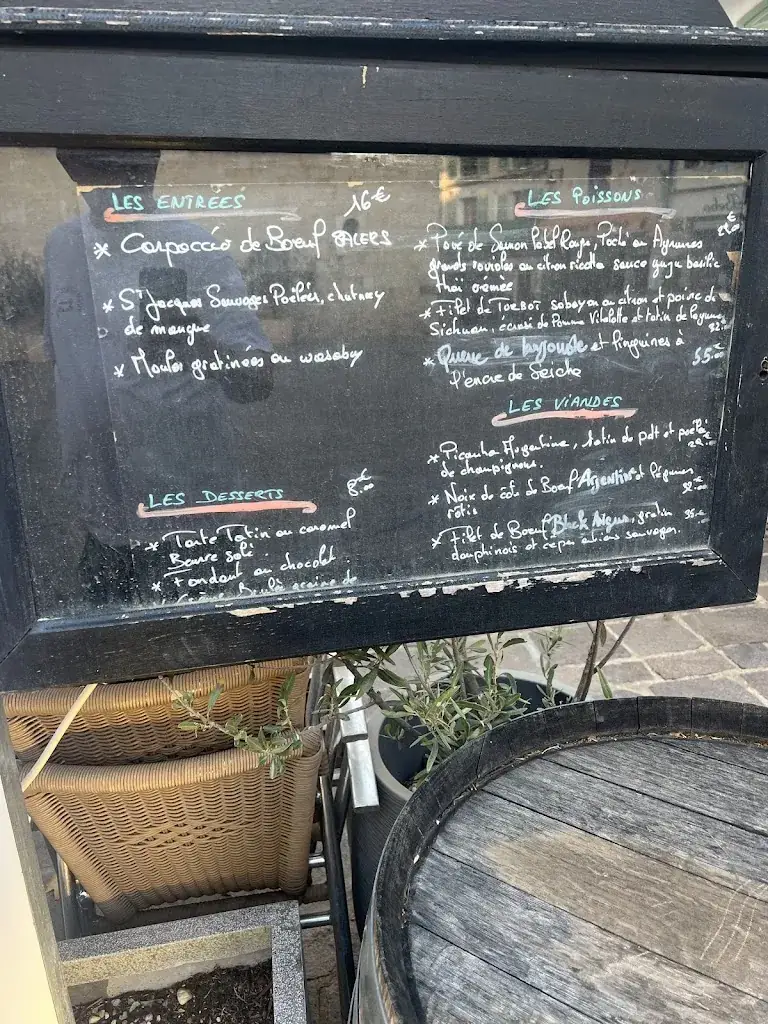 LES ENTRÉES
16€
* Carpaccio de Boeuf
* St Jacques Sauvages Poêlées, chutney
de mangue
* Moules gratinées au wasaby
LES DESSERTS
8.€
* Tarte Tatin au caramel
Beurre salé
* Fondant au chocolat
LES POISSONS
* Pavé de Saumon label Rouge, Poché au Agrumes
grands ravioles au citron ricotta sauce yuzu basilic
thaï crémée
* Filet de TURBOT sabayon au citron et poivre de
Sichuan, écrasé de Pomme Vitelotte et tatin de légumes
32.
* Queue de langouste et linguines à
55.€
l'encre de Seiche
LES VIANDES
* Picanha Argentine, tatin de pdt et poêlée
de champignons.
* Noix de côte de Boeuf Argentine et légumes
rôtis
32.
* Filet de Boeuf Black Angus, gratin
35.€
dauphinois et cepes entiers sauvages.